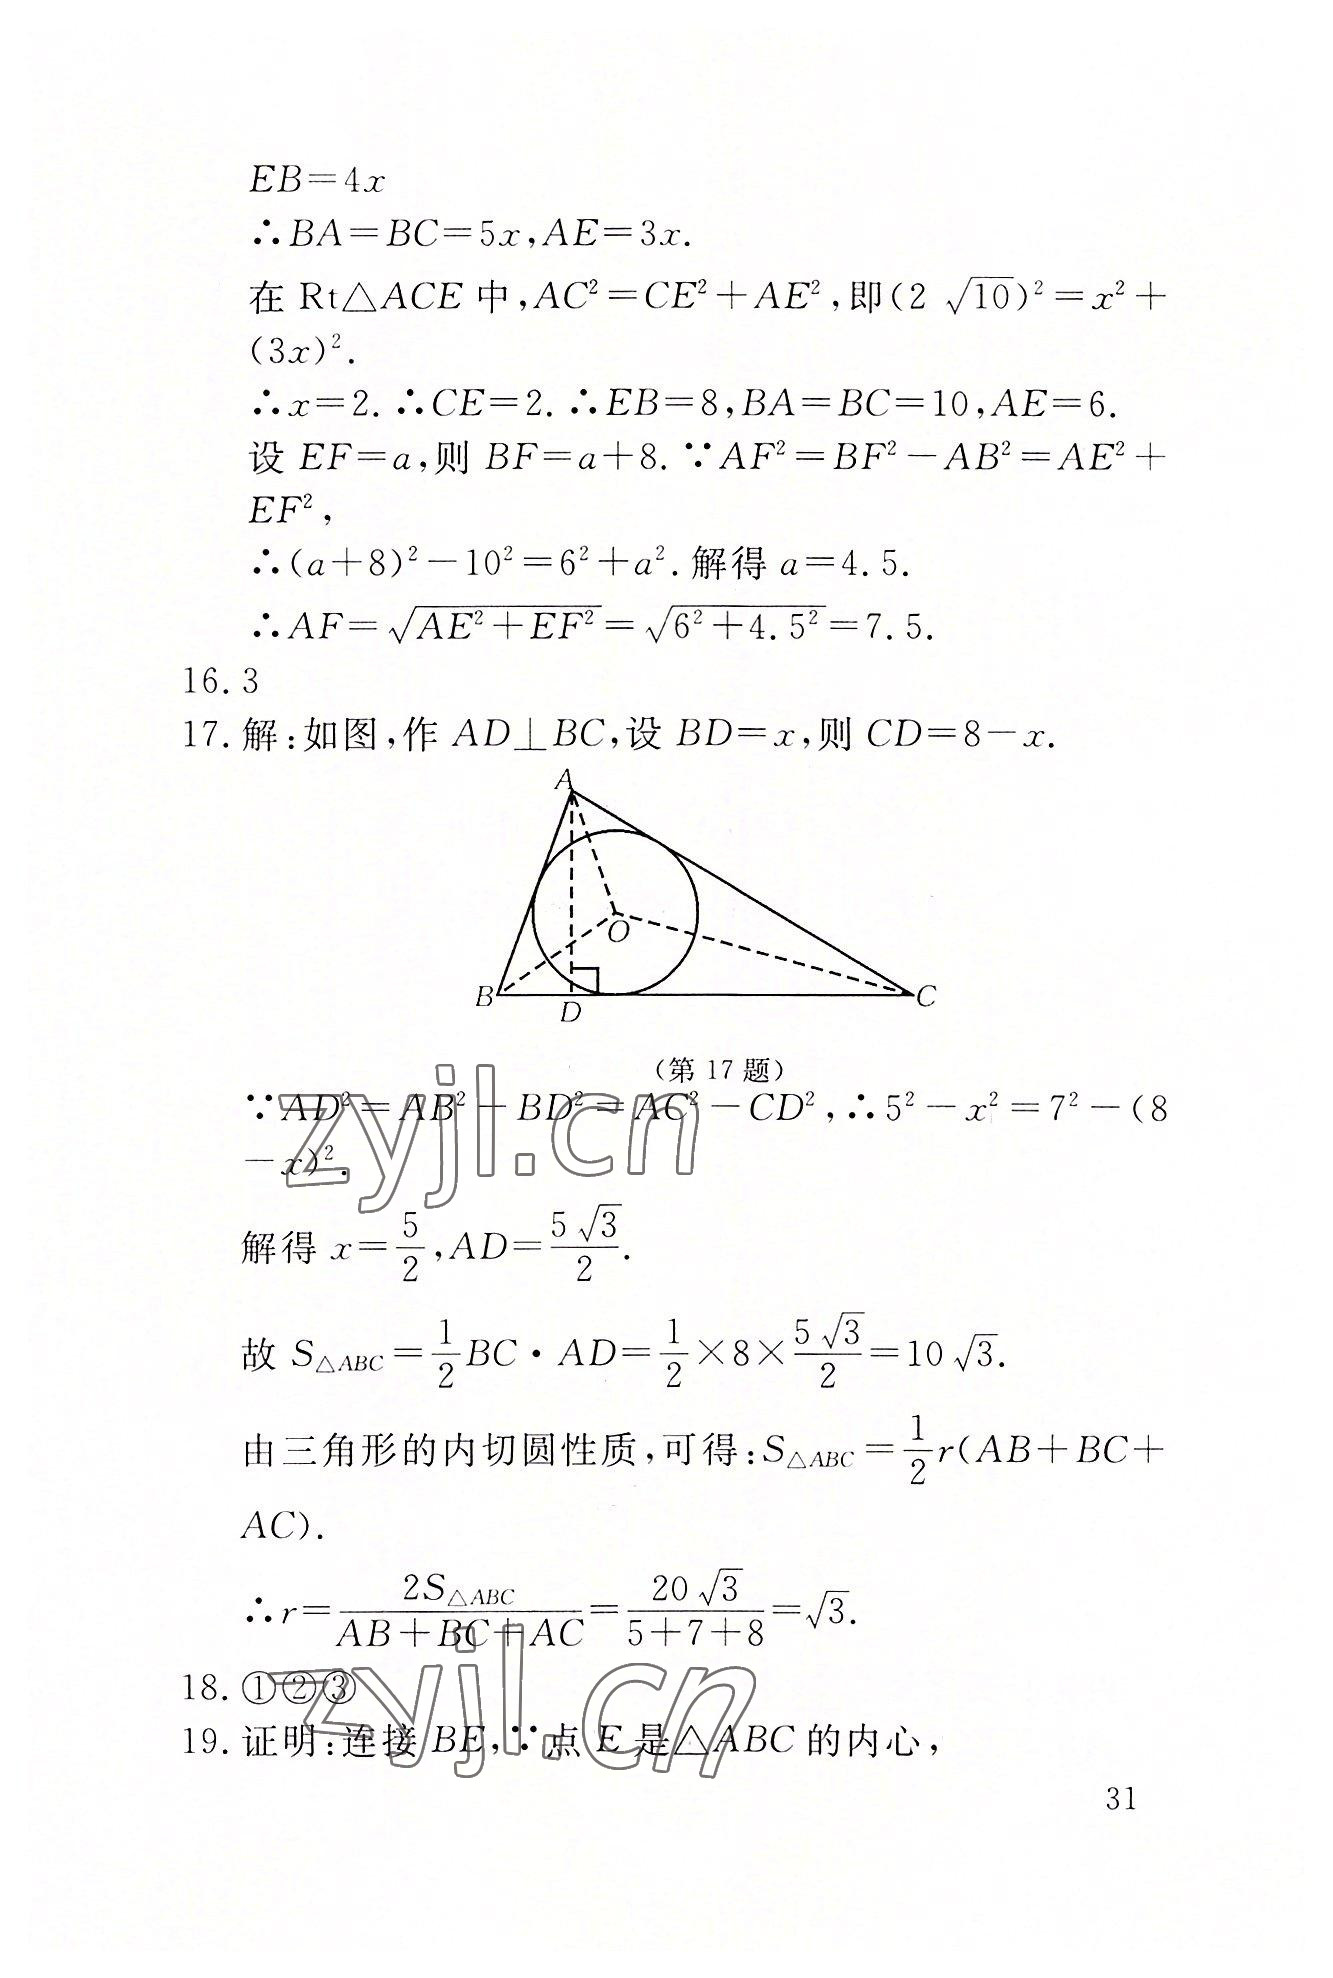 EB=4x
∴BA=BC=5x,AE=3x.
在 Rt△ACE 中,AC²=CE²+AE²,即(2 √10)²=x²+
(3x)².
∴x=2. ∴CE=2. ∴EB=8,BA=BC=10,AE=6.
设 EF=a,则 BF=a+8. ∵AF²=BF²-AB²=AE²+
EF²,
∴(a+8)²-10²=6²+a². 解得 a=4.5.
∴AF=√(AE²+EF²)=√(6²+4.5²)=7.5.
16. 3
17. 解:如图,作 AD⊥BC,设 BD=x,则 CD=8-x.
A
O
B
D
C
(第 17 题)
∵AD²=AB²-BD²=AC²-CD²,∴5²-x²=7²-(8
-x)².
zyjl.cn
解得 x=5/2,AD=5√3/2.
故 S△ABC=1/2 BC·AD=1/2×8×5√3/2=10 √3.
由三角形的内切圆性质,可得:S△ABC=1/2 r(AB+BC+
AC).
∴r=2S△ABC/(AB+BC+AC)=20√3/(5+7+8)=√3.
18. ①②③
zyjl.cn
19. 证明:连接 BE,∵点 E 是△ABC 的内心,
31